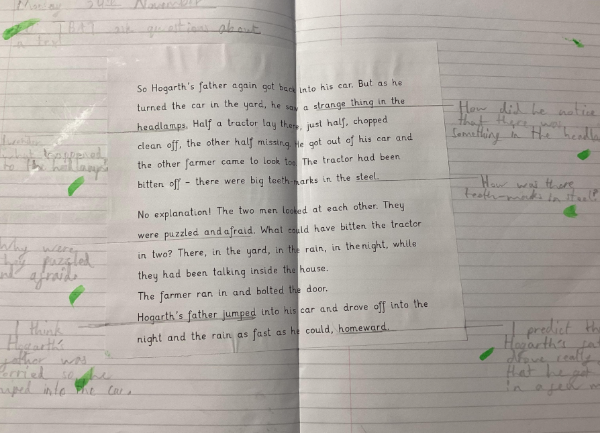 ask questions about
So Hogarth's father again got back into his car. But as he
turned the car in the yard, he saw a strange thing in the
headlamps. Half a tractor lay there, just half, chopped
clean off, the other half missing. He got out of his car and
the other farmer came to look too. The tractor had been
bitten off – there were big teeth-marks in the steel.
No explanation! The two men looked at each other. They
were puzzled and afraid. What could have bitten the tractor
in two? There, in the yard, in the rain, in the night, while
they had been talking inside the house.
The farmer ran in and bolted the door.
Hogarth's father jumped into his car and drove off into the
night and the rain as fast as he could, homeward.
happened
to
Why were
they puzzled
and afraid
I think
Hogarth's
father was
worried so he
jumped into the car.
How did he notice
that there was
something in the
How was there
teeth-marks in steel?
I predict
Hogarth's
drove really
that he got
in a